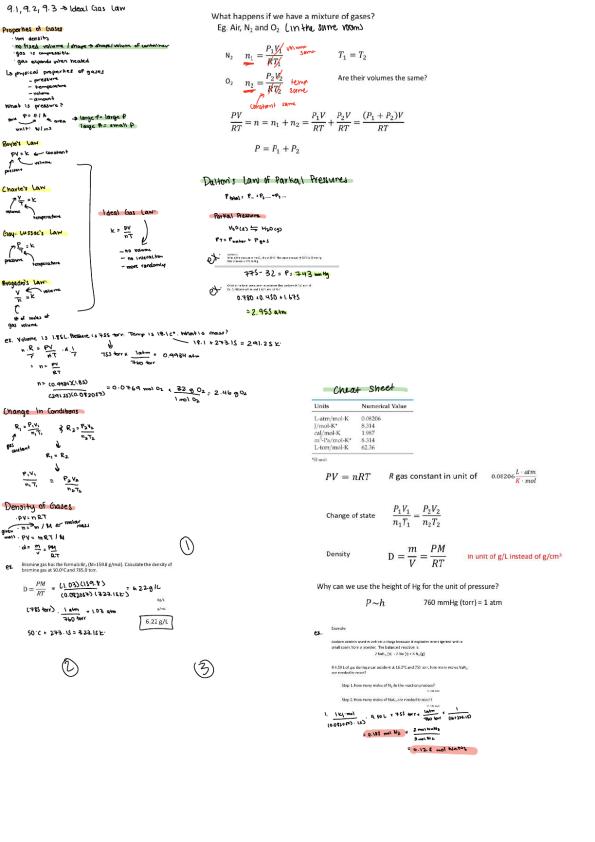 9.1, 9.2, 9.3 → Ideal Gas Law
Properties of Gases
· low density
· no fixed volume / shape → shape/volume of container
· gas is compressible
· gas expands when heated
↳ physical properties of gases
- pressure
- temperature
- volume
- amount
What is pressure?
P = F/A ← area
large F = large P
large A = small P
unit: N/m2
Boyle's Law
PV = k ← constant
pressure
volume
Charle's Law
V/T = k
volume
temperature
Gay-Lussac's Law
P/T = k
pressure
temperature
Avogadro's Law
V/n = k
volume
# of moles of gas
Ideal Gas Law
k = PV/nT
- no volume
- no interaction
- move randomly
ex. Volume is 1.85L. Pressure is 755 torr. Temp is 18.1 c°. What is mass?
18.1 + 273.15 = 291.25 K
755 torr x 1atm/760 torr = 0.9934 atm
n = PV/RT
n = (0.9934)(1.85)/(291.25)(0.082057) = 0.0769 mol O2 x 32 g O2/1 mol O2 = 2.46 g O2
Change in Conditions
R1 = P1V1/n1T1 & R2 = P2V2/n2T2
gas constant
R1 = R2
P1V1/n1T1 = P2V2/n2T2
Density of Gases
· PV = nRT
· n = m / M ← molar mass
· PV = mRT / M
· d = m/V = PM/RT
①
ex.
Bromine gas has the formula Br2 (M=159.8 g/mol). Calculate the density of bromine gas at 50.0°C and 785.0 torr.
D = PM/RT = (1.03)(159.8)/(0.082057)(323.15K) = 6.22 g/L
(785 torr) · 1 atm/760 torr = 1.03 atm
6.22 g/L
50°C + 273.15 = 323.15 K
②
③
What happens if we have a mixture of gases?
Eg. Air, N2 and O2 (in the same room)
N2 n1 = P1V1/RT1 volume same T1 = T2
O2 n1 = P2V2/RT2 temp same Are their volumes the same?
constant same
PV/RT = n = n1 + n2 = P1V/RT + P2V/RT = (P1 + P2)V/RT
P = P1 + P2
Dalton's Law of Partial Pressures
Partial Pressure
H2O(l) ⇌ H2O(g)
PT = Pwater + Pgas
ex.
775 - 32 = P = 743 mmHg
ex.
0.780 + 0.450 + 1.675
= 2.955 atm
Cheat Sheet
Units Numerical Value
L-atm/mol-K 0.08206
J/mol-K* 8.314
cal/mol-K 1.987
m3-Pa/mol-K* 8.314
L-torr/mol-K 62.36
PV = nRT R gas constant in unit of 0.08206 L · atm/K · mol
Change of state P1V1/n1T1 = P2V2/n2T2
Density D = m/V = PM/RT in unit of g/L instead of g/cm3
Why can we use the height of Hg for the unit of pressure?
P~h 760 mmHg (torr) = 1 atm
Example
ex.
2 NaN3 (s) → 2 Na (s) + 3 N2(g)
Step 1. How many moles of N2 do the reaction produce?
Step 2. How many moles of NaN3 are needed to react?
= 0.188 mol N2
= 0.125 mol NaN3